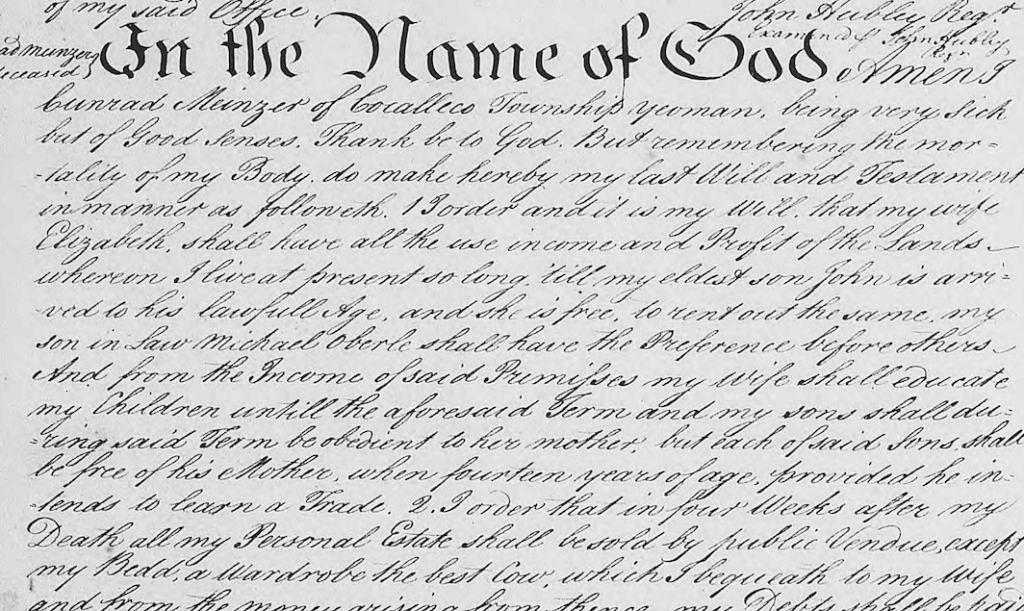 of my said Office.
John Hubley Regr
Examined p John Hubley
Regr
ad Meinzer
deceased
In the Name of God Amen I
Cunrad Meinzer of Cocallico Township yeoman, being very sick
but of Good Senses, Thank be to God. But remembering the mor=
=tality of my Body, do make hereby my last Will and Testament
in manner as followeth. 1 I order and it is my Will, that my wife
Elizabeth, shall have all the use income and Profit of the Lands
whereon I live at present so long, 'till my eldest son John is arri=
=ved to his lawfull Age, and she is free, to rent out the same, my
son in Law Michael Oberle shall have the Preference before others
And from the Income of said Premisses my Wife shall educate
my Children untill the aforesaid Term and my sons shall du=
=ring said Term be obedient to her mother, but each of said Sons, shall
be free of his Mother, when fourteen years of age, provided he in=
=tends to learn a Trade. 2. I order that in four Weeks after my
Death all my Personal Estate shall be sold by public Vendue, except
my Bedd, a Wardrobe the best Cow, which I bequeath to my Wife
and from the money arising from thence my Debts shall be paid